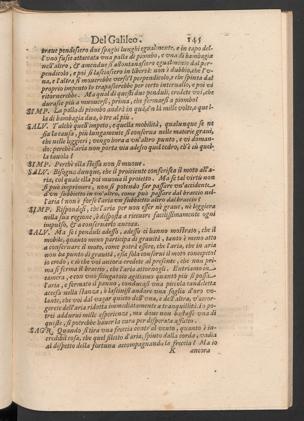 Del Galileo. 145
brave pendessero due spaghi lunghi egualmente, e in capo del-
l'uno fusse attaccata una palla di piombo, e una di bambagia
nell'altro, & amendue si allontanassero egualmente dal per-
pendicolo, e poi si lasciassero in libertà: non è dubbio, che l'u-
na, e l'altra si moverebbe verso'l perpendicolo, e che spinta dal
proprio impeto lo trapasserebbe per certo intervallo, e poi vi
ritornerebbe. Ma qual di questi due penduli, credete voi, che
durasse più a muoversi, prima, che fermarsi a piombo?
SIMP. La palla di piombo andrà in quà, e'n là mille volte, e quel-
la di bambagia dua, ò tre al più.
SALV. Talchè quell'impeto, e quella mobilità, qualunque se ne
sia la causa, più lungamente si conserva nelle materie gravi,
che nelle leggieri, vengo hora a un altro punto, e vi doman-
do: perchè l'aria non porta via adesso quel cedro, ch'è sù quel-
la tavola?
SIMP. Perchè ella stessa non si muove.
SALV. Bisogna dunque, che il proiciente conferisca il moto all'a-
ria, col quale ella poi muova il proietto. Ma se tal virtù non
si può imprimere, non si potendo far passare un'accidente
d'un subbietto in un'altro, come può passare dal braccio nel-
l'aria? non è forse l'aria un subbietto altro dal braccio?
SIMP. Rispondesi, che l'aria per non esser nè grave, nè leggiera
nella sua regione, è disposta a ricevere facilissimamente ogni
impulso, & a conservarlo ancora.
SALV. Ma se i penduli adesso, adesso ci hanno mostrato, che il
mobile, quanto meno participa di gravità, tanto è meno atto
a conservare il moto, come potrà essere, che l'aria, che in aria
non hà punto di gravità, essa sola conservi il moto concepito?
Io credo, e sò, che voi ancora credete al presente, che non pri-
ma si ferma il braccio, che l'aria attornogli. Entriamo in ca-
mera, e con uno sciugatoio agitiamo quanto più si possa
l'aria, e fermato il panno, conducasi una piccola candeletta
accesa nella stanza, ò lascivisi andare una foglia d'oro vo-
lante, che voi dal vagar quieto dell'una, e dell'altra, v'accor-
gerete dell'aria ridotta immediatamente a tranquillità. Io po-
trei addurvi mille esperienze, ma dove non bastasse una di
queste, si potrebbe haver la cura per disperata affatto.
SAGR. Quando si tira una freccia contr'al vento, quanto è in-
credibil cosa, che quel filetto d'aria, spinto dalla corda, vadia
al dispetto della fortuna accompagnando la freccia! Ma io
K ancora